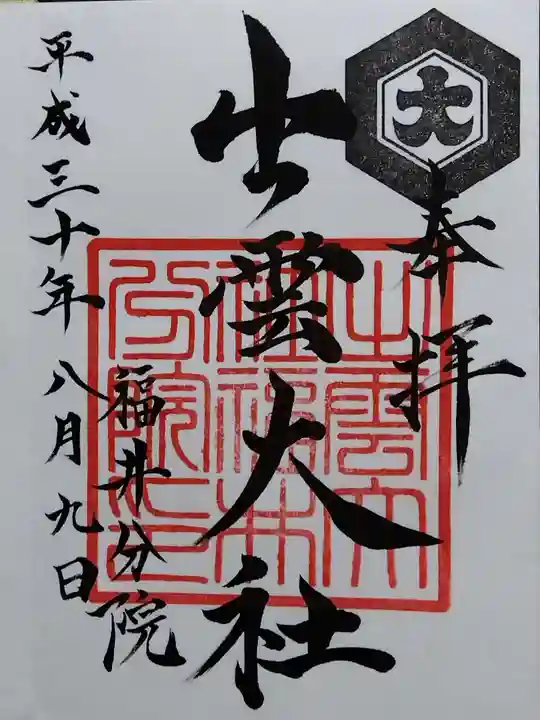 大
奉拝
出雲大社
出雲大
社福井
分院之印
福井分院
平成三十年八月九日